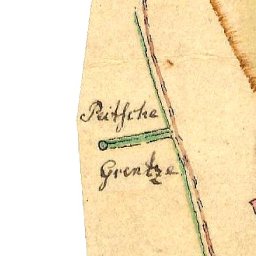 Peitsche
Grentze